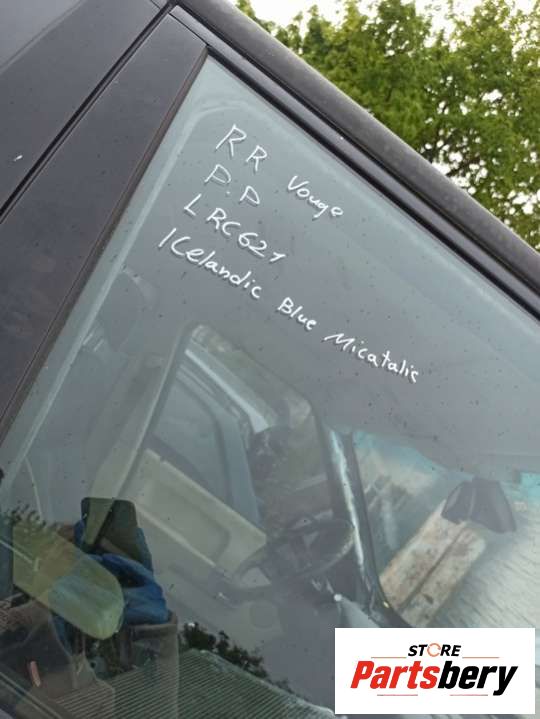 RR Vouge
P.P
LRC621
Icelandic Blue Micatalic
STORE
Partsbery